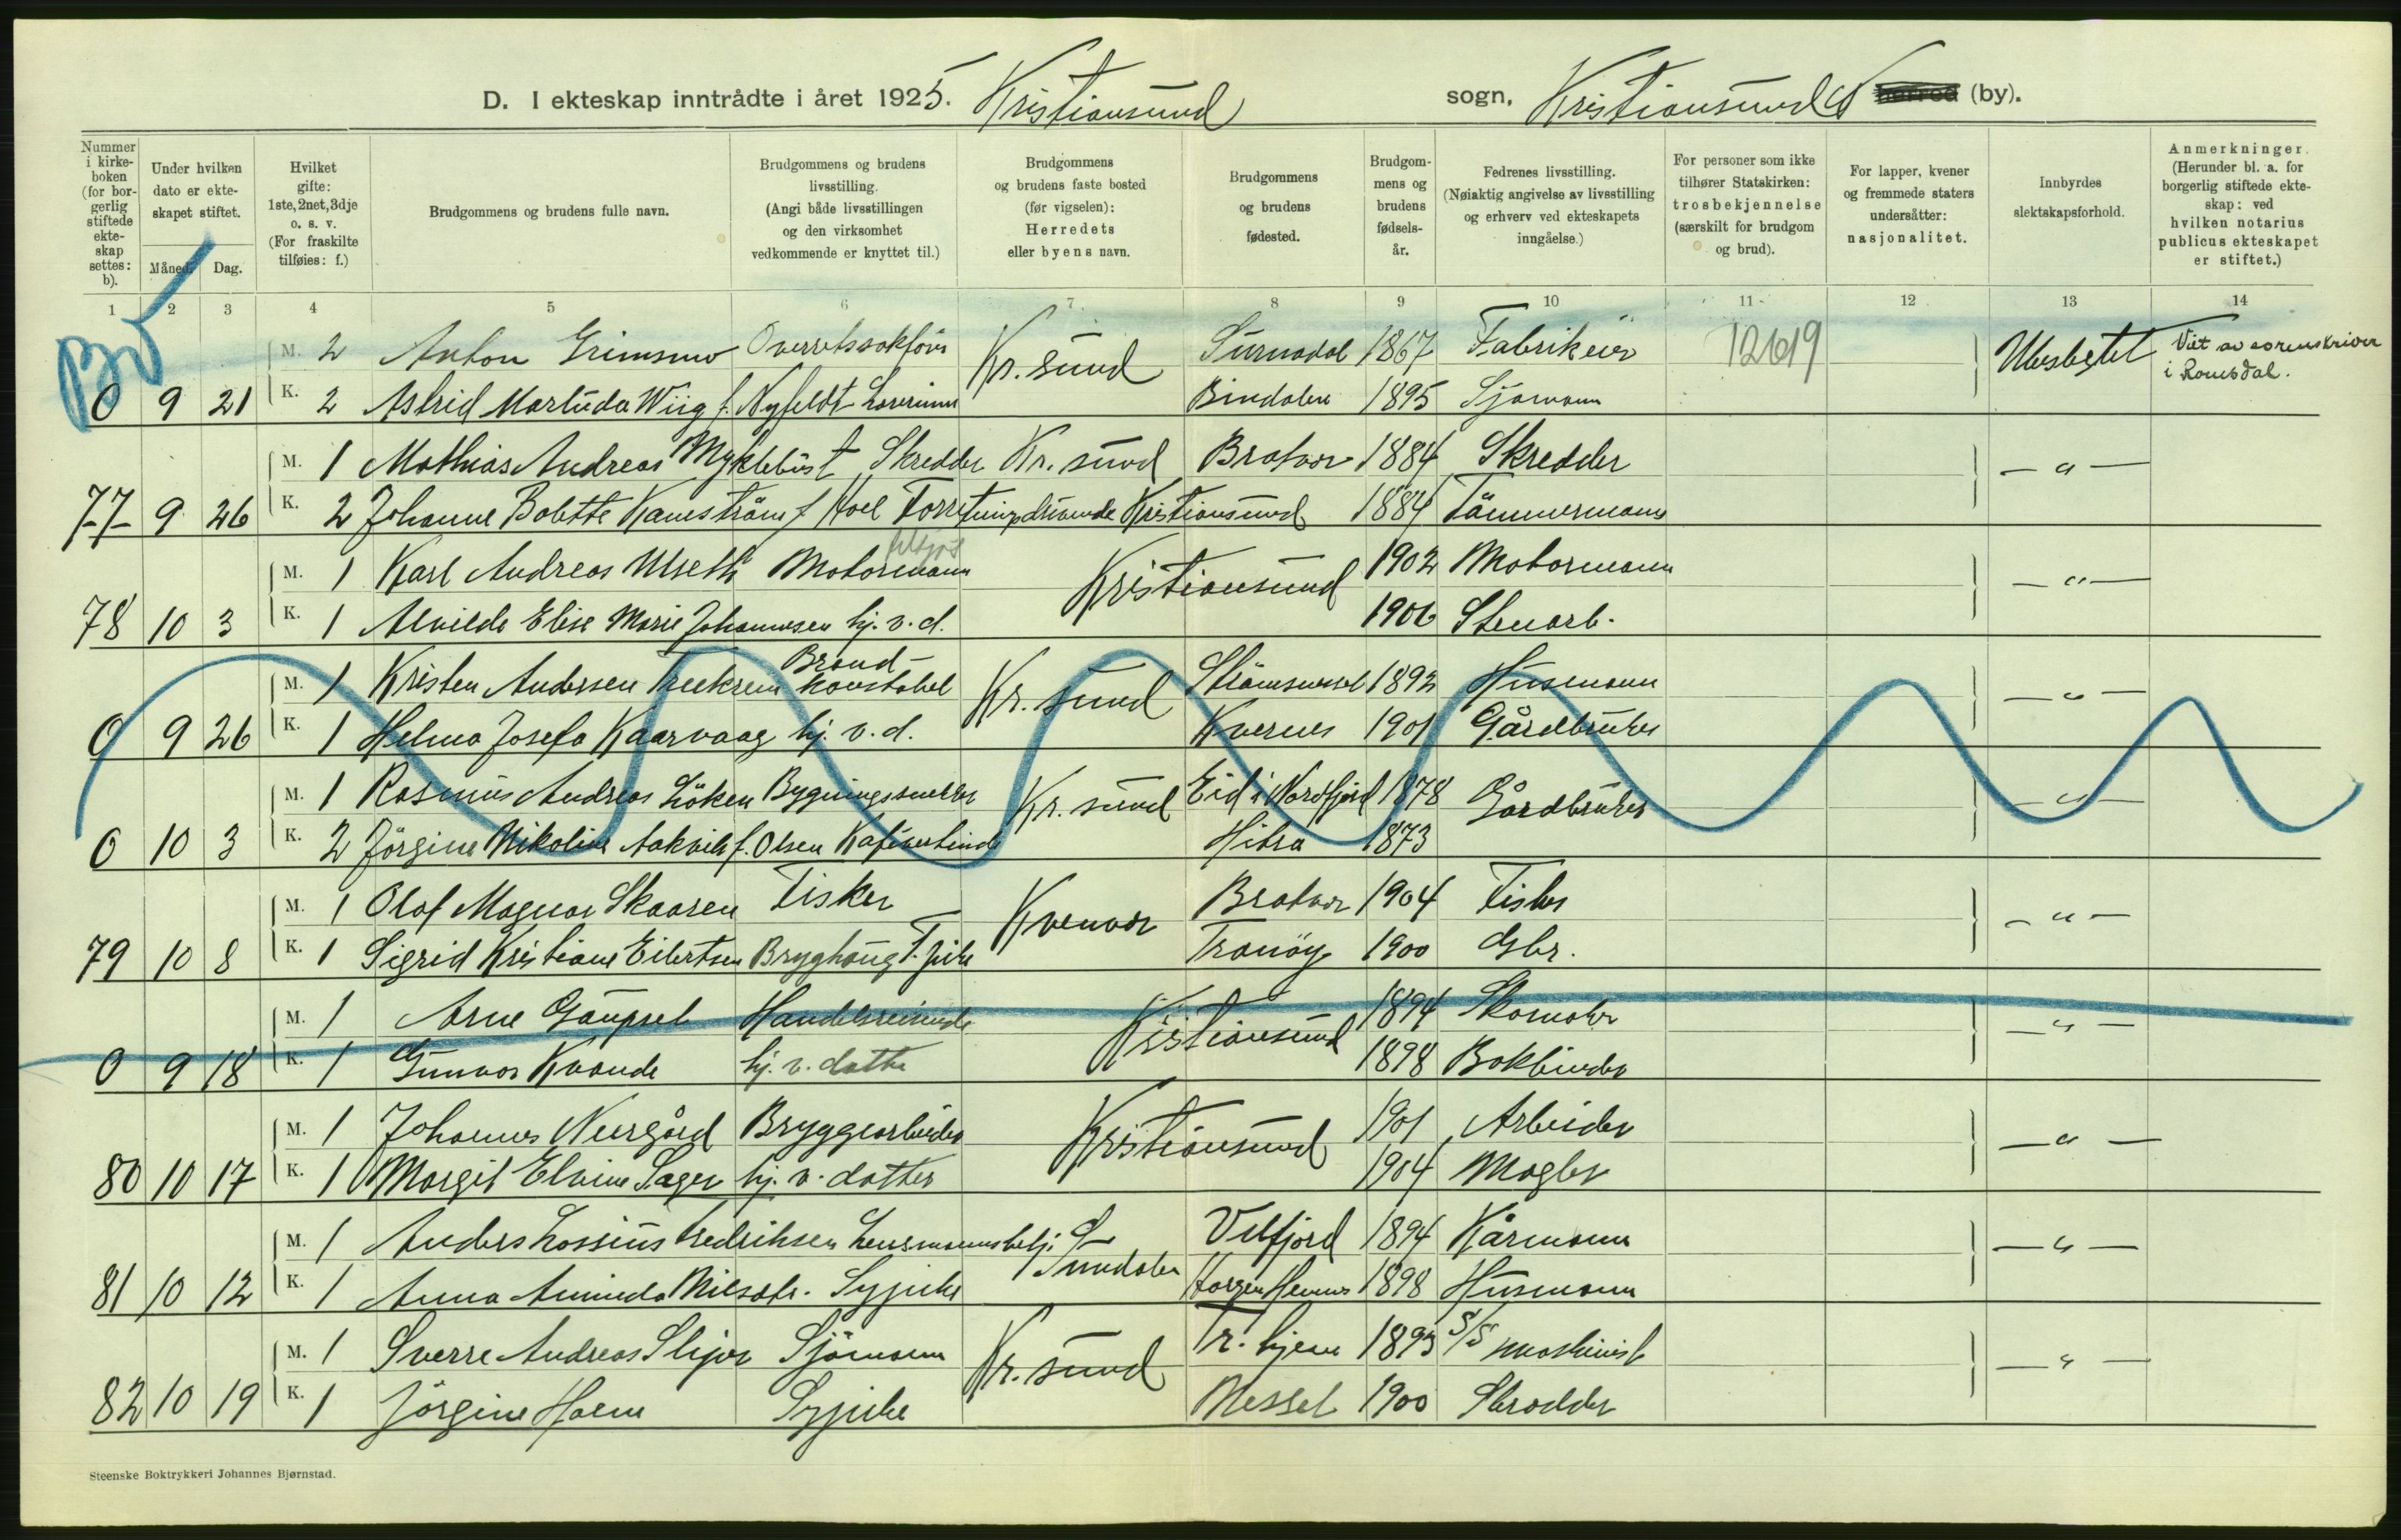 D. I ekteskap inntrådte i året 1925. Kristiansund sogn, Kristiansund N herred (by).
Nummer i kirkeboken (for borgerlig stiftede ekteskap settes: b).
Under hvilken dato er ekteskapet stiftet.
Måned. Dag.
Hvilket gifte: 1ste, 2net, 3dje o. s. v. (For fraskilte tilføies: f.)
Brudgommens og brudens fulle navn.
Brudgommens og brudens livsstilling. (Angi både livsstillingen og den virksomhet vedkommende er knyttet til.)
Brudgommens og brudens faste bosted (før vigselen): Herredets eller byens navn.
Brudgommens og brudens fødested.
Brudgommens og brudens fødselsår.
Fedrenes livsstilling. (Nøiaktig angivelse av livsstilling og erhverv ved ekteskapets inngåelse.)
For personer som ikke tilhører Statskirken: trosbekjennelse (særskilt for brudgom og brud).
For lapper, kvener og fremmede staters undersåtter: nasjonalitet.
Innbyrdes slektskapsforhold.
Anmerkninger. (Herunder bl. a. for borgerlig stiftede ekteskap: ved hvilken notarius publicus ekteskapet er stiftet.)
1 2 3 4 5 6 7 8 9 10 11 12 13 14
M. 2 Anton Grimsmo Overretssakfører Kr. sund Surnadal 1867 Fabrikeier 12619 Ubeslegtet Viet av sorenskriver i Romsdal.
0 9 21 K. 2 Astrid Martuda Wiig f. Nyfeldt Bindalen 1895 Sjømann
M. 1 Mathias Andreas Myklebust Skredder Kr. sund Bratvær 1884 Skredder — " —
77 9 26 K. 2 Johanne Bolette Kanestrøm f Hoel Forretningsdrivende Kristiansund 1884 Tømmermann
M. 1 Karl Andreas Ulseth Motormann Kristiansund 1902 Motormann — " —
78 10 3 K. 1 Alvilde Elise Marie Johannesen hj. v. d. 1906 Stenarb.
M. 1 Kristen Andersen Treekrem Brand-konstabel Kr. sund Strømsneset 1892 Husmann — " —
0 9 26 K. 1 Helma Josefa Kaarvaag hj. v. d. Kvernes 1901 Gårdbruker
M. 1 Rasmus Andreas Løken Bygningssnekker Kr. sund Eid i Nordfjord 1878 Gårdbruker — " —
0 10 3 K. 2 Jørgine Nikoline Aakvik f. Olsen Kafévertinde Hitra 1873
M. 1 Olaf Magnar Skaaren Fisker Kvenvær Bratvær 1904 Fisker — " —
79 10 8 K. 1 Sigrid Kristiane Eilertsen Bryghaug T. pike Tranøy 1900 Gbr.
M. 1 Arne Gaupset Handelsreisende Kristiansund 1894 Skomaker — " —
0 9 18 K. 1 Gunvor Kvande hj. v. datter 1898 Bokbinder
M. 1 Johannes Neergård Bryggearbeider Kristiansund 1901 Arbeider — " —
80 10 17 K. 1 Margit Elvine Sager hj. v. datter 1904 Mægler
M. 1 Anders Lossius Fredriksen Lensmannsbetj. Sundalen Velfjord 1894 Kårmann — " —
81 10 12 K. 1 Anna Aminda Nilsdtr. Sypike Hemne 1898 Husmann
M. 1 Sverre Andreas Slipor Sjømann Kr. sund Tr. hjem 1893 S/S maskinist — " —
82 10 19 K. 1 Jørgine Holm Sypike Nesset 1900 Skredder
Steenske Boktrykkeri Johannes Bjørnstad.